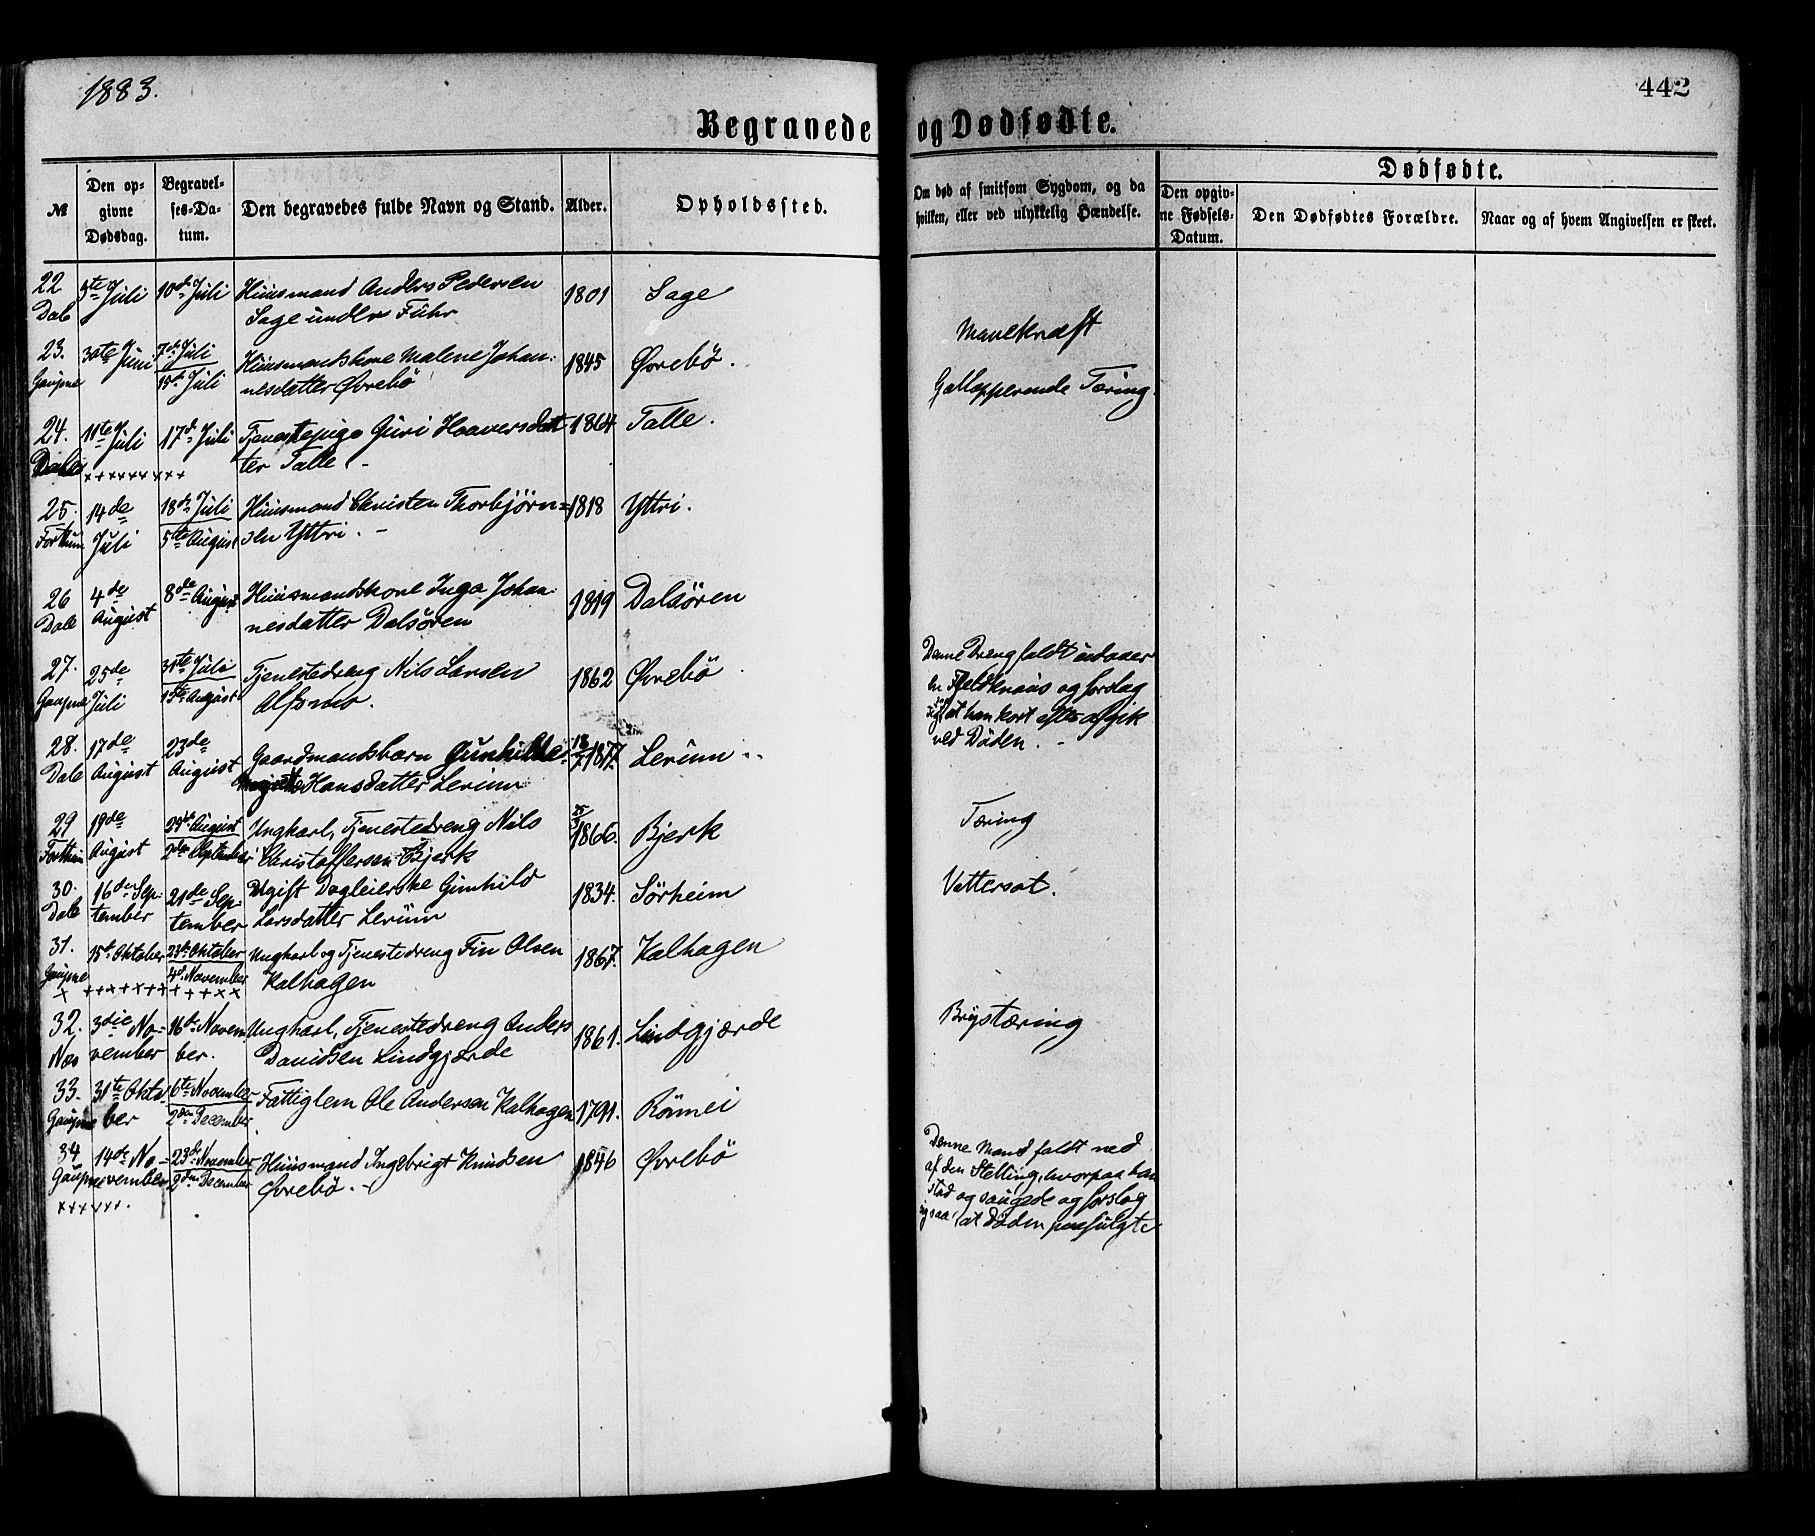 1883.
442
Begravede og Dødfødte.
№
Den opgivne Dødsdag.
Begravelses-Datum.
Den begravedes fulde Navn og Stand.
Alder.
Opholdssted.
Om død af smitsom Sygdom, og da hvilken, eller ved ulykkelig Hændelse.
Dødfødte.
Den opgivne Fødsels-Datum.
Den Dødfødtes Forældre.
Naar og af hvem Angivelsen er skeet.
22 Dale
Juli
10de Juli
Huusmand Anders Pedersen
Sage under Fuhr
1801
Sage
Mavekræft
23. Gaupne
30te Juni
7de Juli
15de Juli
Huusmandskone Malene Johan-
nesdatter Øvrebö
1845
Øvrebö.
Gallopperende Tæring.
24.
11te Juli
17de Juli
Tjenestepige Guri Haaversdat
ter Talle
1864
Talle.
25. Forthun
14de Juli
18de Juli
5te August
Huusmand Christen Thorbjørn=
sen Yttri. -
1818
Yttri.
26 Dale
4de August
8de August
Huusmandskone Inga Johan-
nesdatter Dalsören
1819
Dalsören
27. Gaupne
25de Juli
31te Juli
August
Tjenestedreng Nils Larsen
Alsmo.
1862
Øvrebö
Denne Dreng faldt udover
en Fjeldknaus og forslog
sig saa at han kort efter afgik
ved Döden. -
28. Dale
17de August
23de August
Gaardmandsbarn Gunhilde
Hansdatter Lerum
1877.
Lerum
29 Forthun
19de August
August
2den September
Ungkarl, Tjenestedreng Nils
Christoffersen Bjerk
1866.
Bjerk
Tæring
30. Dale
16de September
21de September
Ugift Dagleierske Gunhild
Larsdatter Lerum
1834.
Sörheim
Vattersot.
31. Gaupne
15de Oktober
23de Oktober
4de November
Ungkarl og Tjenestedreng Fin Olsen
Kalhagen
1867.
Kalhagen
32. Nes
3die November
16de November.
Ungkarl, Tjenestedreng Anders
Davidsen Lindgjærde
1861.
Lindgjærde
Brystæring
33. Gaupne
31te Oktober
6te November
2den December.
Fattiglem Ole Andersen Kalhagen
1791.
Römei
34 Gaupne
14de November
23de November
2den December
Huusmand Ingebrigt Knudsen
Øvrebö. -
1846
Øvrebö
Denne Mand faldt ned
af den Stelling, hvorpaa han
stod og saugede og forslog
sig saa, at Döden paafulgte